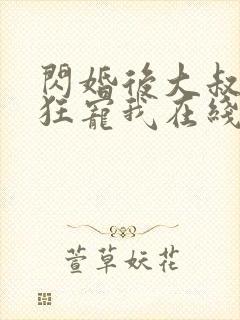 閃婚後大叔
狂寵我在綫
萱草妖花